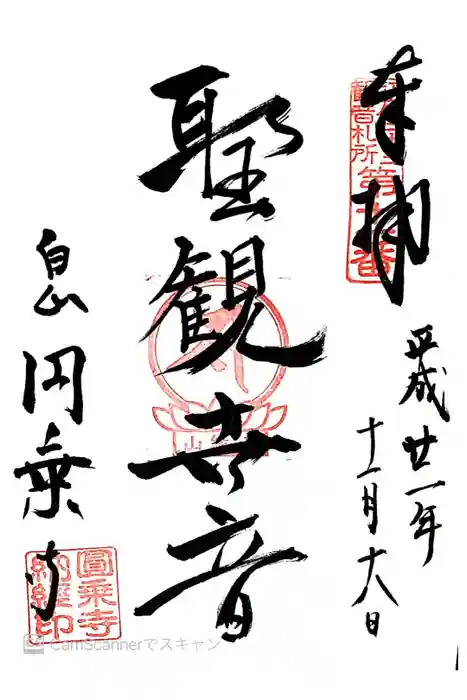 奉拝
平成廿一年
十一月十八日
聖観世音
白山
円乗寺
観音札所
圓乗寺
納経印
CamScannerでスキャン